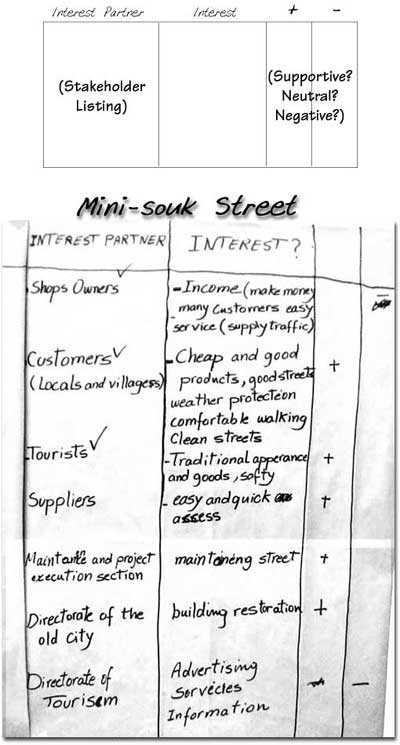 Interest Partner Interest + -
(Stakeholder
Listing)
(Supportive?
Neutral?
Negative?)
Mini-souk Street
INTEREST PARTNER INTEREST?
Shops Owners
- Income (make money
many customers easy
service (supply traffic)
-
Customers
(Locals and villagers)
- Cheap and good
products, good streets
weather protection
comfortable walking
Clean streets
+
- Tourists
- Traditional apperance
and goods, safty
+
Suppliers
- easy and quick
assess
+
and project
execution section
maintaining street
+
Directorate of the
old City
building restoration
+
Directorate of
Tourism
Advertising
Information
-